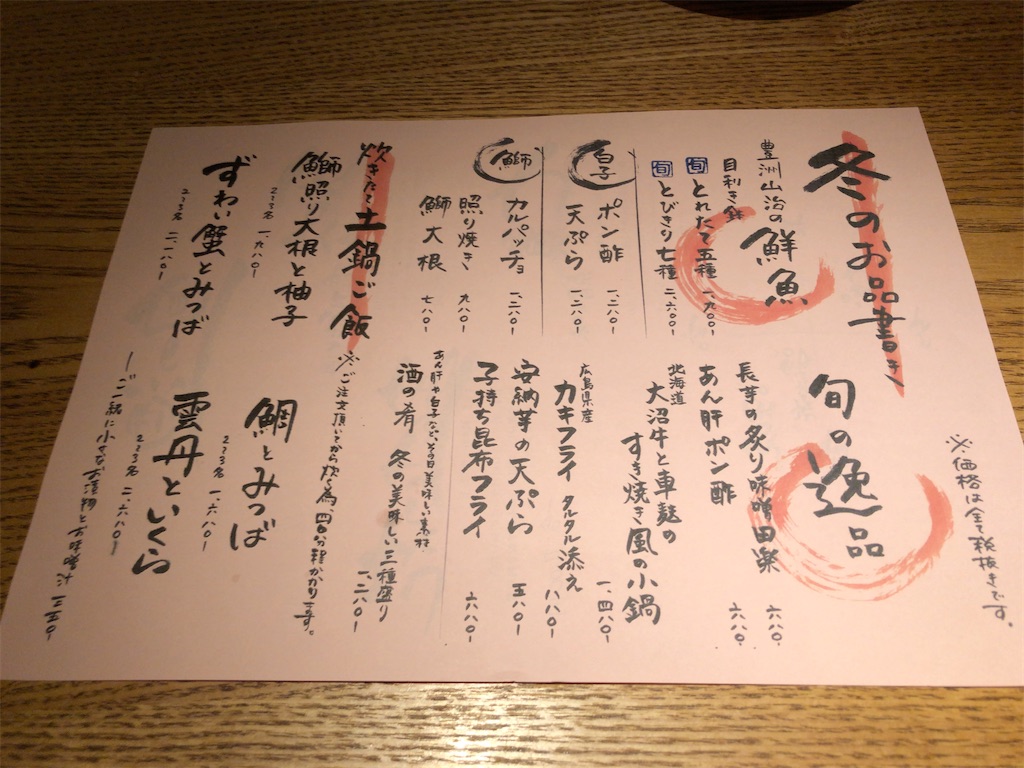 冬のお品書き
※価格は全て税抜きです。
豊洲山治の鮮魚
目利き
旬 とれたて五種 一、九八〇-
旬 とびきり七種 二、六八〇-
白子
ポン酢 一、二八〇-
天ぷら 一、二八〇-
鰤
カルパッチョ 一、二八〇-
照り焼き 九八〇-
鰤大根 七八〇-
旬の逸品
長芋の炙り味噌田楽 六八〇-
あん肝ポン酢 六八〇-
北海道
大沼牛と車麩の
すき焼き風の小鍋 一、四八〇-
広島県産
カキフライ タルタル添え 八八〇-
安納芋の天ぷら 五八〇-
子持ち昆布フライ 六八〇-
あん肝や白子など、その日美味しい素材
酒の肴 冬の美味しい三種盛り 一、二八〇-
炊きたて土鍋ご飯
※ご注文頂いてから炊く為、四〇分程かかります。
鰤照り大根と柚子
2〜3名 一、九八〇-
ずわい蟹とみつば
2〜3名 二、一八〇-
鯛とみつば
2〜3名 一、六八〇-
雲丹といくら
2〜3名 二、六八〇-
ご一緒に 小さなお漬物とお味噌汁 三五〇-